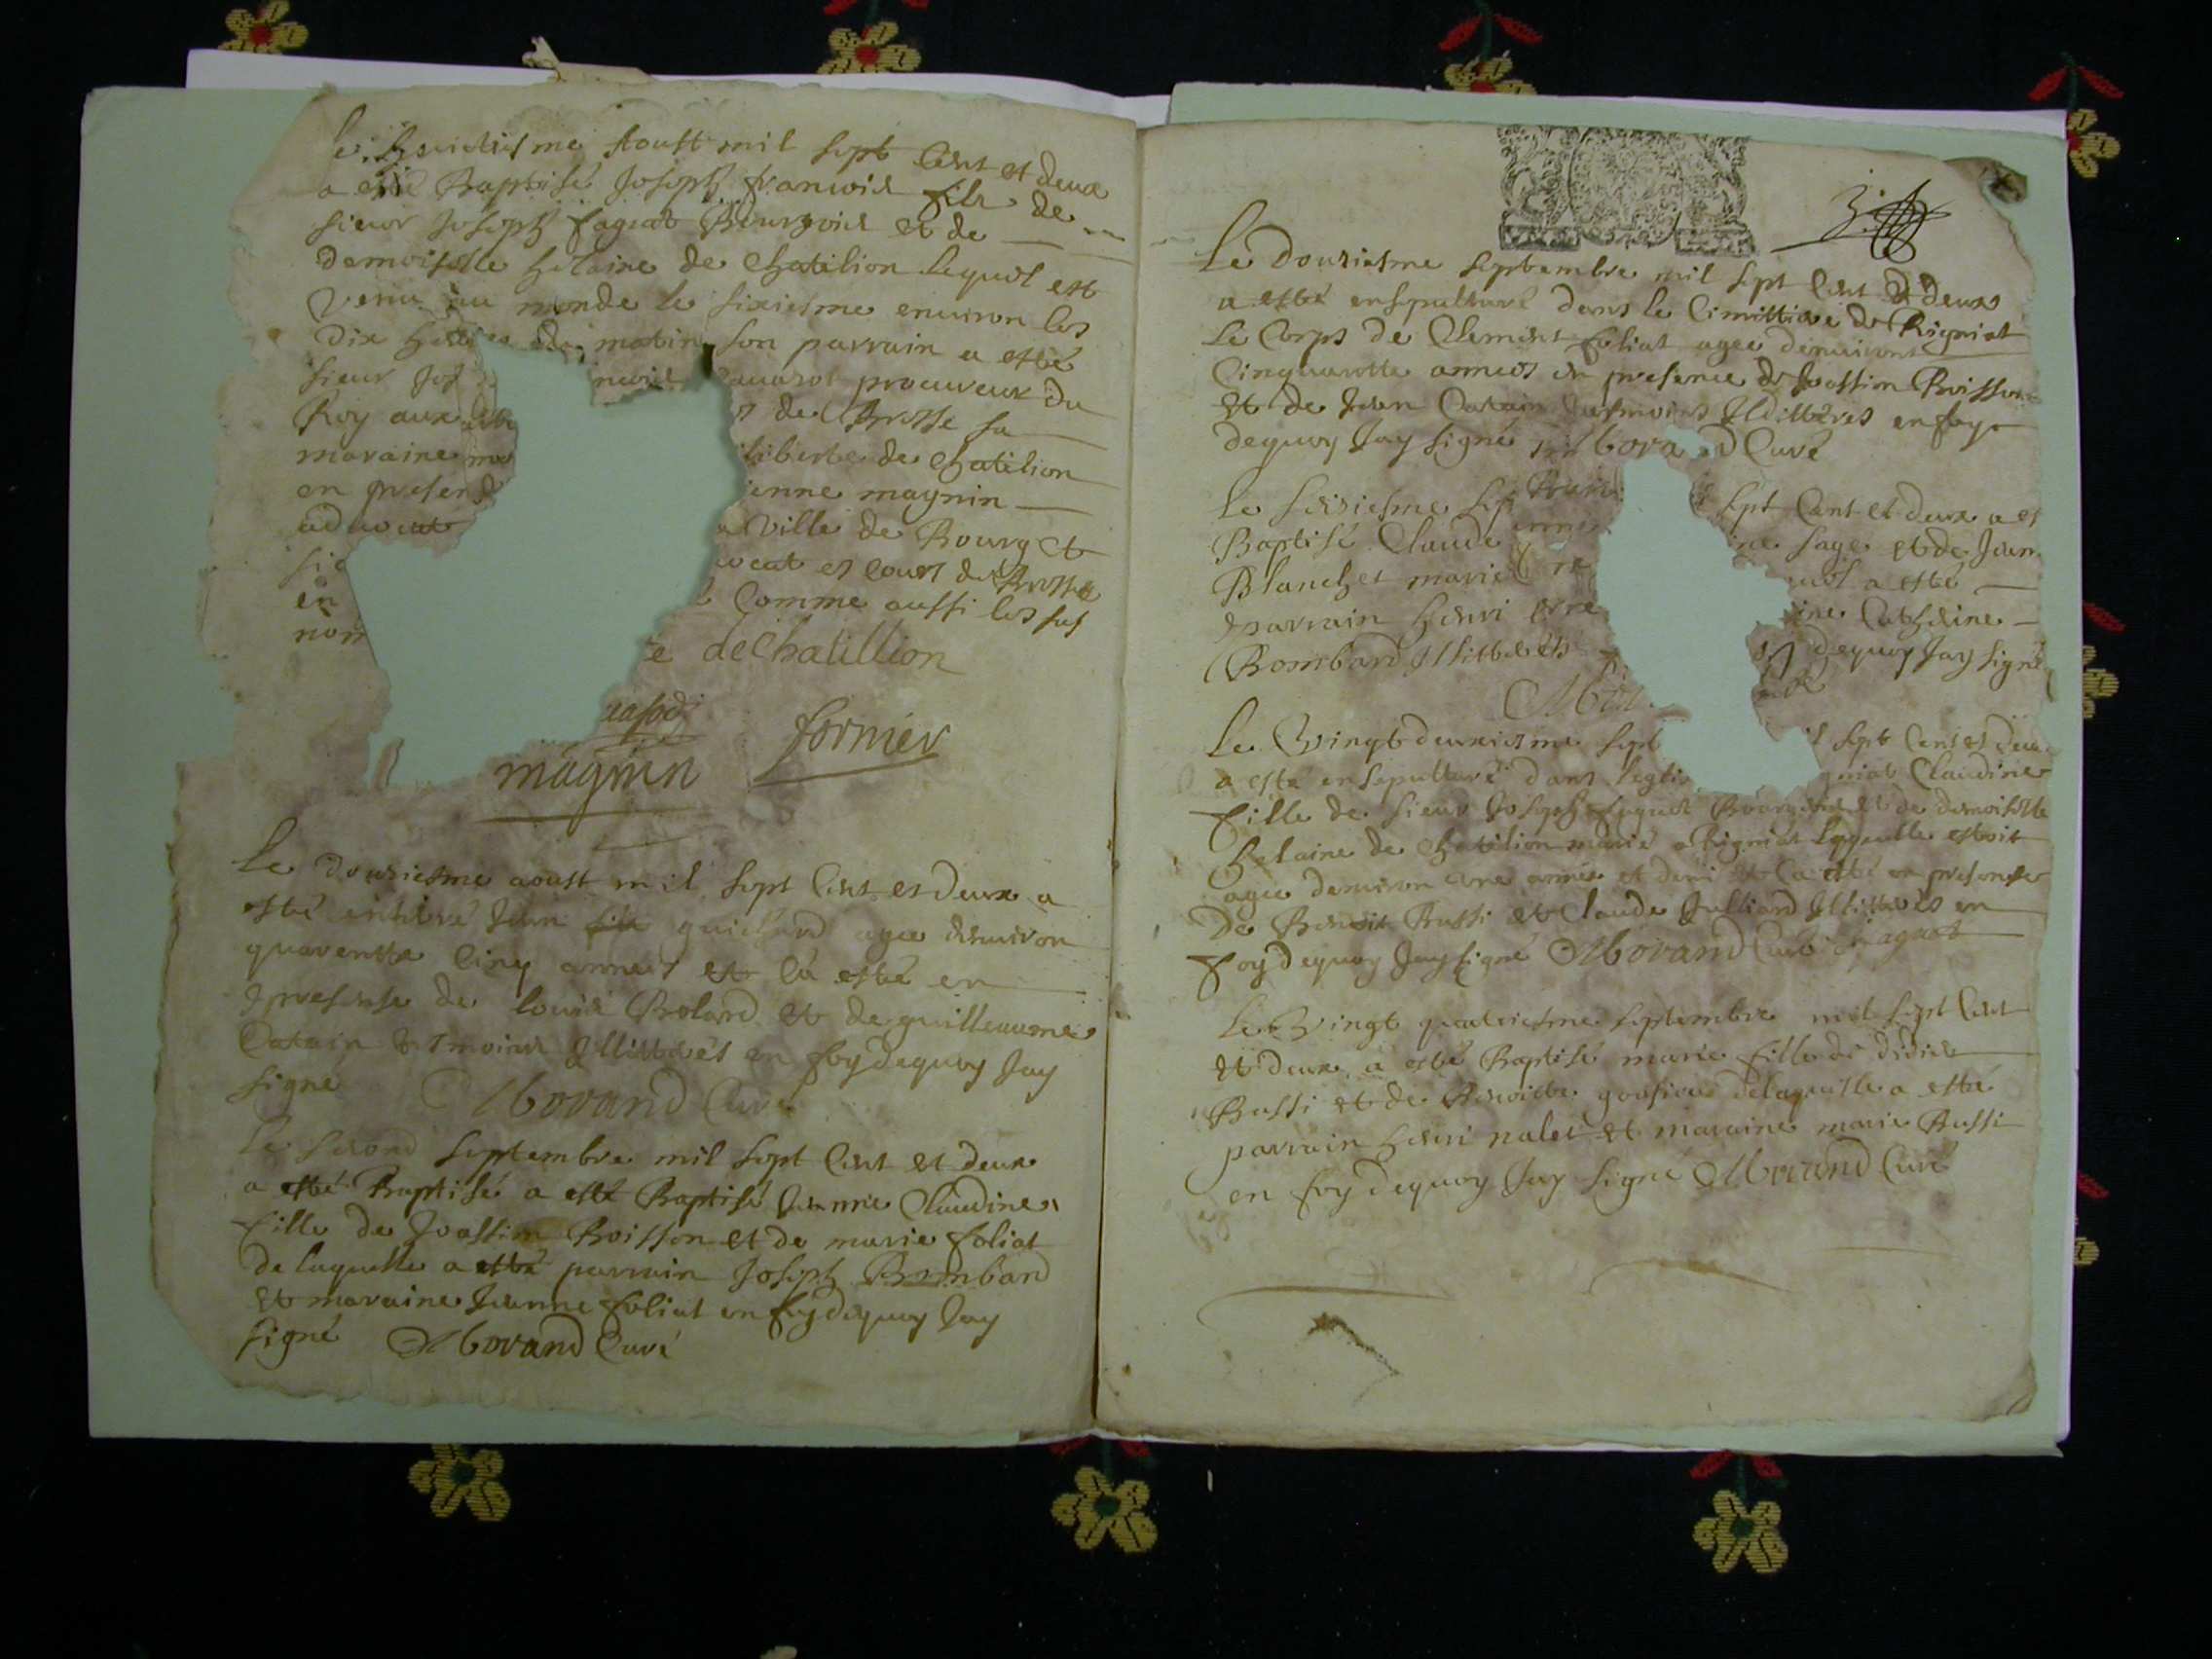 Le huictiesme Aoust mil sept Cent et deux
a esté Baptisé Joseph francois fils de
sieur Joseph faguet Bourgois et de
demoiselle helaine de Chatilion lequel est
venu au monde le sixiesme environ les
dix heures de matin son parrain a esté
sieur Jos procureur du
Roy aux de Brosse sa
maraine liberte de Chatilion
en presen ienne magnin
aduocat a ville de Bourg et
sie ocat es cours de Brosse
en Comme aussi les sus
nom
e deChatillion
magnin fornier
Le dousiesme aoust mil sept Cent et deux a
esté enterré Jean guichard agee denuiron
quarentte Cinq annees et la esté en
presense de louis Bolard et de guilleaume
Catain tesmoins Illitterés en foy dequoy Jay
signé Morand Curé
Le second septembre mil sept Cent et deux
a esté Baptisé a esté Baptisé Jeanne Claudine
fille de Joassim Boisson et de marie foliat
de laquelle a esté parrain Joseph Bombard
et maraine Jeanne foliat en foy dequoy Jay
signé Morand Curé
3.
Le dousiesme septembre mil sept Cent et deux
a esté ensepulturé dans le Cimittiere de Rigniat
Le Corps de Clement foliat agee denuiront
Cinquantte annees en presence de Joassim Boisson
et de Jean Catain tesmoins Illitteres en foy
dequoy Jay signé Mora d Curé
Le seisiesme sep sept Cent et deux a es
Baptisé Claude ine sage et de Jean
Blanchet mariés uel a esté
parrain henri ine Catherine
Bombard Illitteres dequoy Jay signé
Mor
Le Vingt deuxiesme sept sept Cent et deux
a esté ensepulturé dans leglis gniat Claudine
fille de sieur Joseph faguet Bourgois et de demoiselle
helaine de Chatilion marié a Rigniat laquelle estoit
agee denuiron une année et demi et la esté en presense
de Benoit Bussi et Claude Julliard Illitterés en
foy dequoy Jay signé Morand Curé faguet
Le Vingt quatriesme septembre mil sept Cent
et deux a esté Baptisé marie fille de didier
Bussi et de Benoitte delaquelle a esté
parrain henri nalet et maraine marie Bussi
en foy dequoy Jay signé Morand Curé